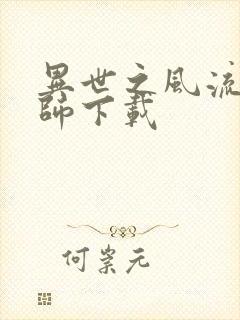 異世之風流
師下載
何崇元